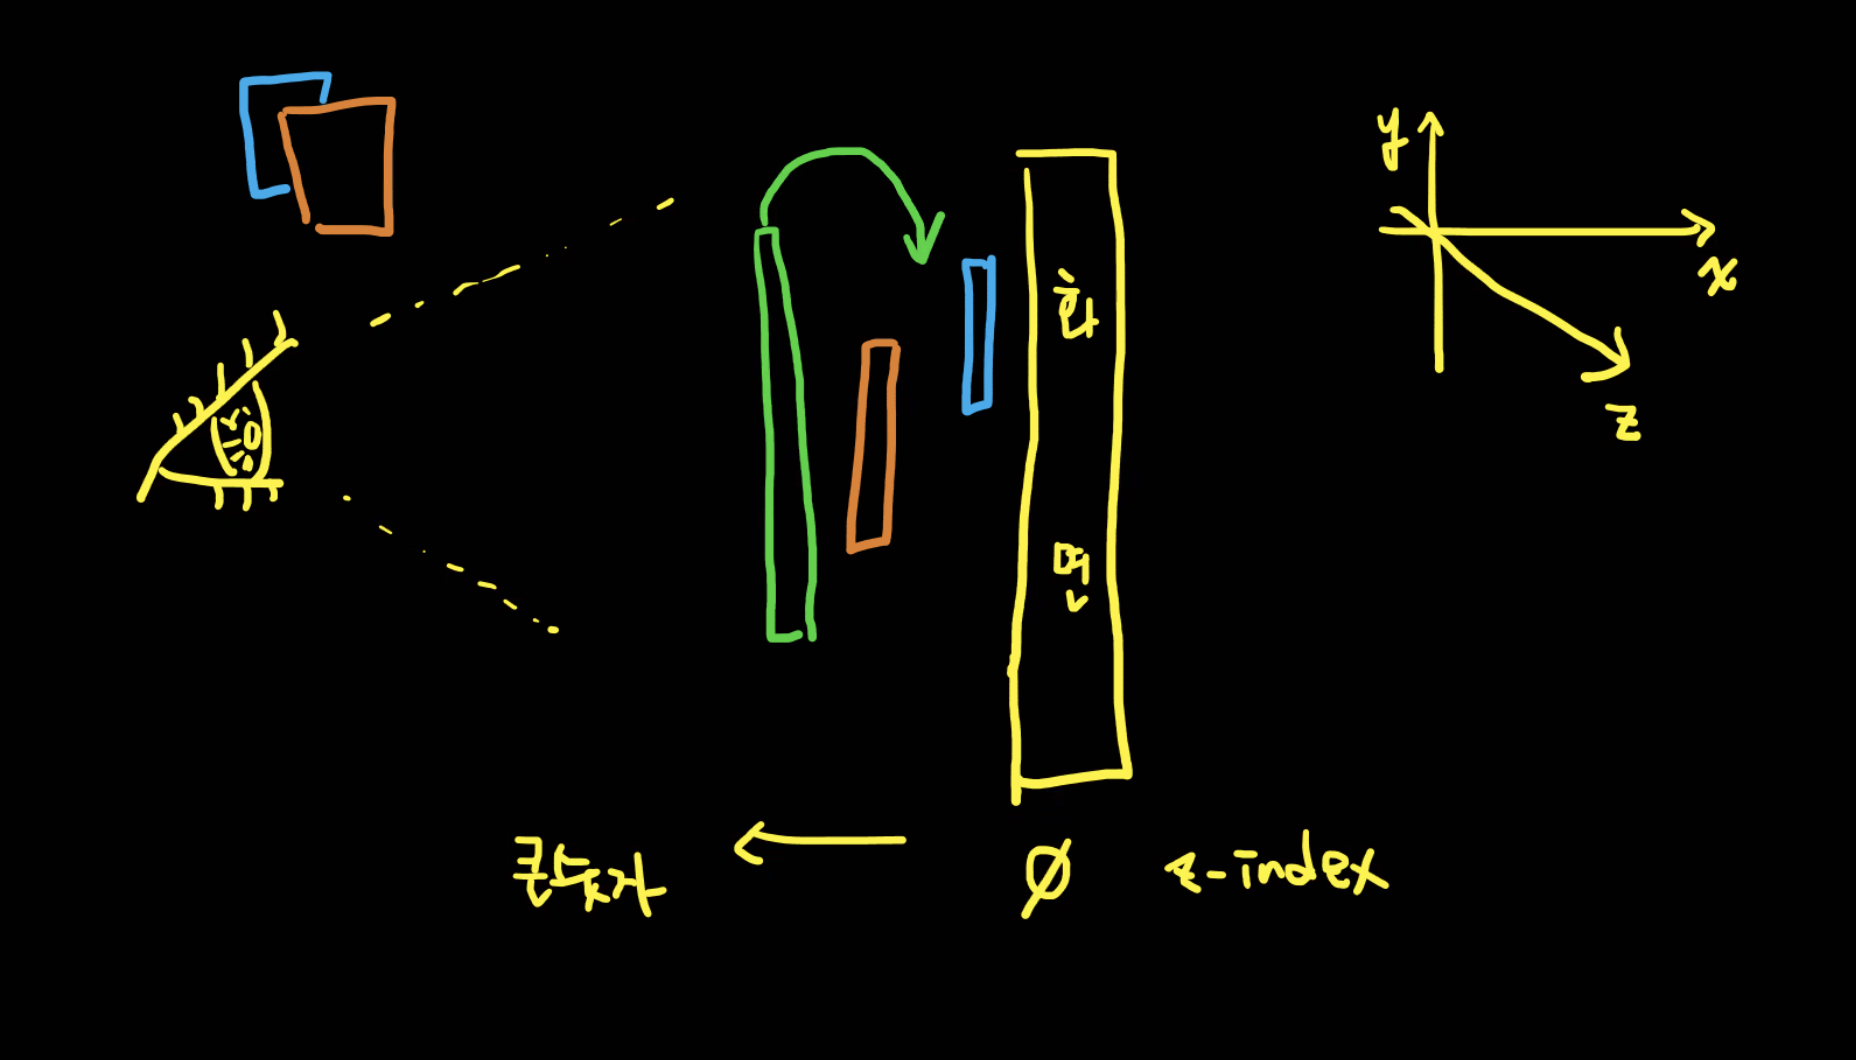 y
x
z
화
면
큰숫자
Ø z-index